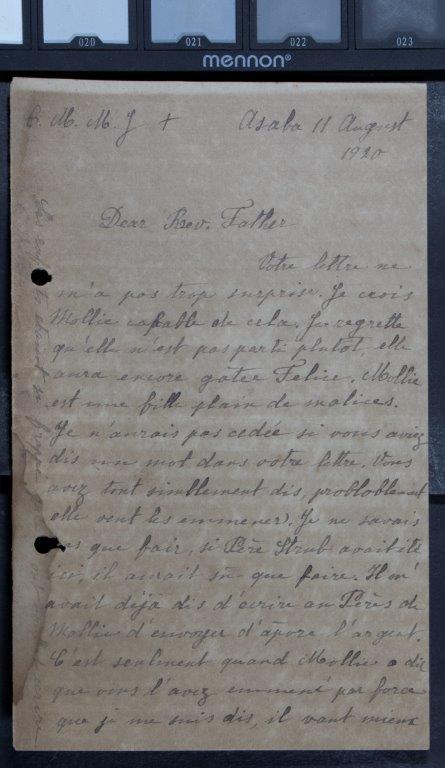 020 021 022 023
mennon®
C. M. M. J +
Asaba 11 August
1920
Dear Rev. Father
Votre lettre ne
m'a pas trop surprise. Je crois
Mollie capable de cela. Je regrette
qu'elle n'est pas parti plutot elle
aura encore gatee Felice. Mollie
est une fille plain de malices.
Je n'aurais pas cedée si vous aviez
dis un mot dans votre lettre. Vous
avez tout simblement dis,
elle vent les emmener). Je ne savais
pas que fair, si Père Strub avait été
ici, il aurait sû que faire. Il m'
avait déjà dis d'écrire au Pères de
Mollie d'envoyer d'apore l'argent.
C'est seulment quand Mollie a dit
que vous l'avez emmené par force
que je me suis dis, il vaut mieux